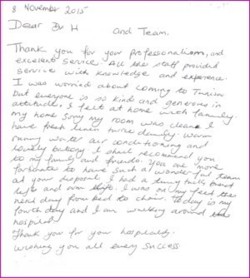 8 November 2015
Dear Dr H and Team.
Thank you for your professionalism, and
excellent service. All the staff provided
service with knowledge and experience.
I was worried about coming to Tunisia
but everyone is so kind and generous in
attitude. I felt at home with family.
my home my room was clean I
have fresh linen twice
running water air conditioning and
lovely balcony. I shall recommend you
to my family and friends. You are
fortunate to have such a wonderful team
at your disposal. I had a
left and on my feet the
next day from bed to chair. today is my
fourth day and I am walking around the
hospital
Thank you for your hospitality.
Wishing you all every success